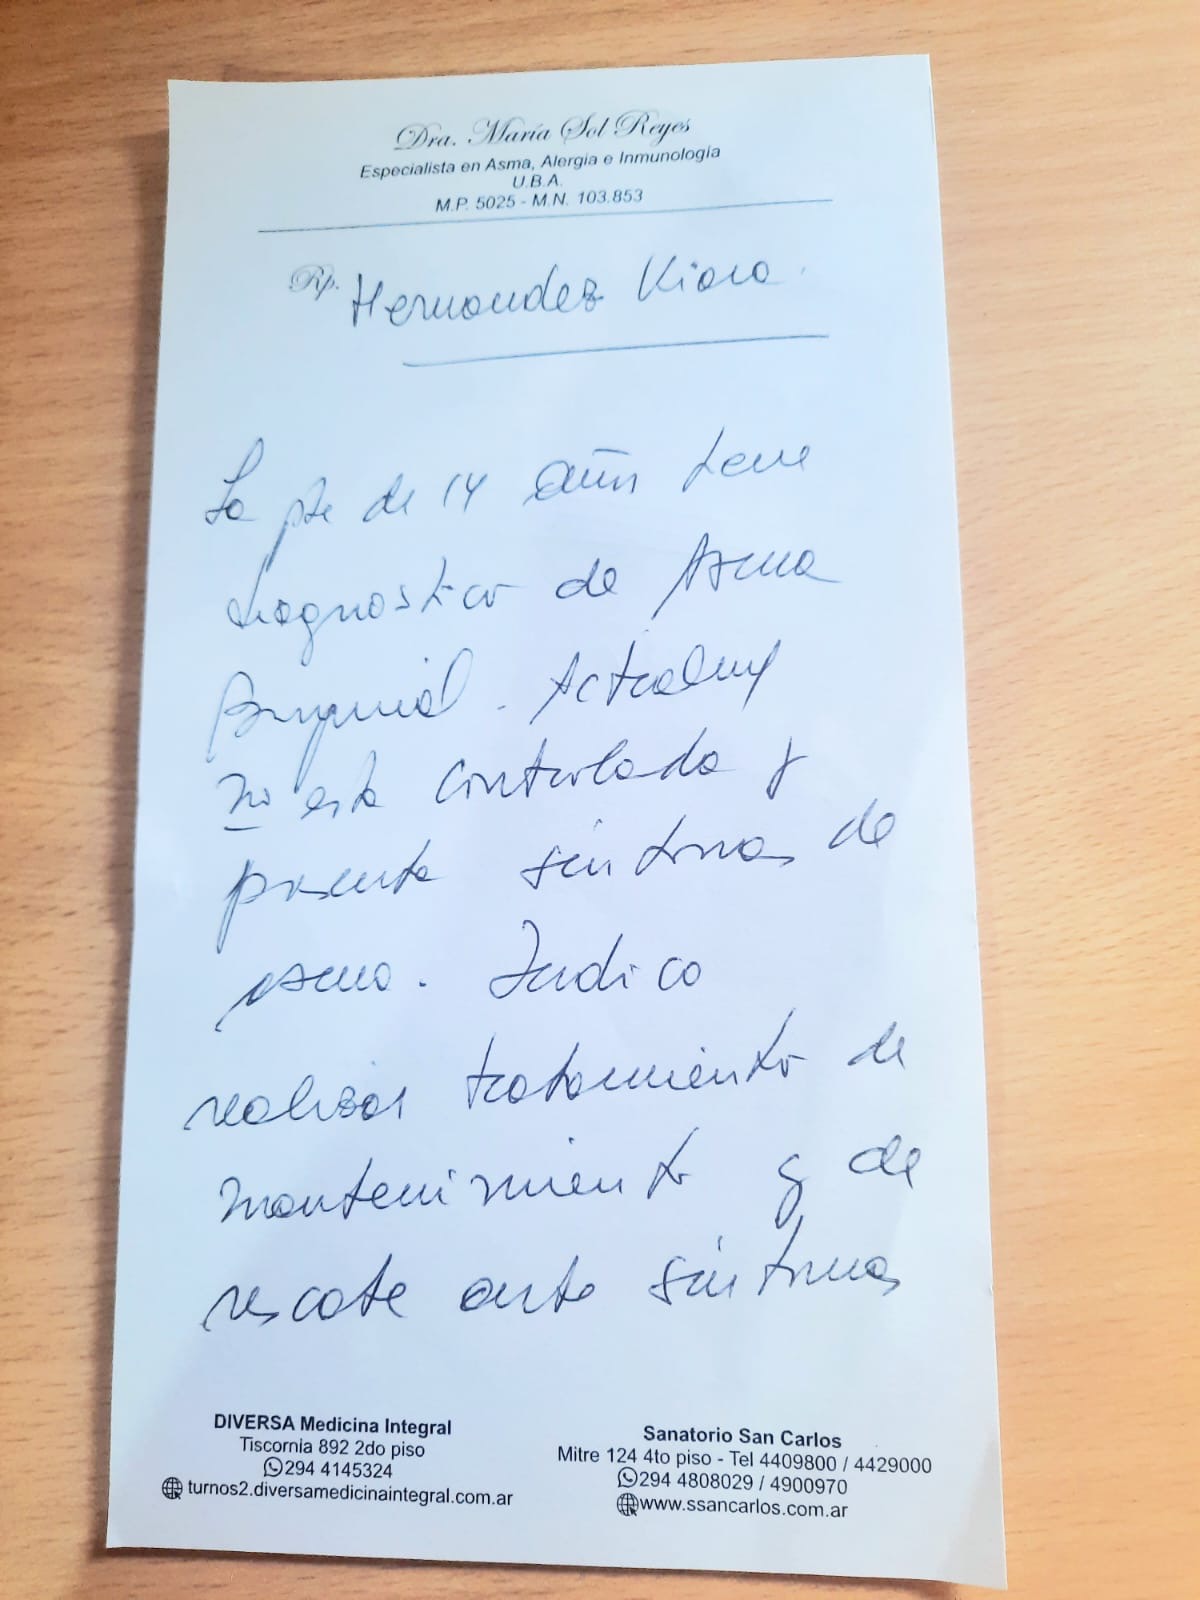 Dra. María Sol Reyes
Especialista en Asma, Alergia e Inmunología
U.B.A.
M.P. 5025 - M.N. 103.853
Rp. Hernandez Kiara.
La pte de 14 años tiene
diagnostico de Asma
Bronquial. Actualmente
no esta controlada y
presenta síntomas de
asma. Indico
realizar tratamiento de
mantenimiento y de
rescate ante síntomas
DIVERSA Medicina Integral
Tiscornia 892 2do piso
294 4145324
turnos2.diversamedicinaintegral.com.ar
Sanatorio San Carlos
Mitre 124 4to piso - Tel 4409800 / 4429000
294 4808029 / 4900970
www.ssancarlos.com.ar